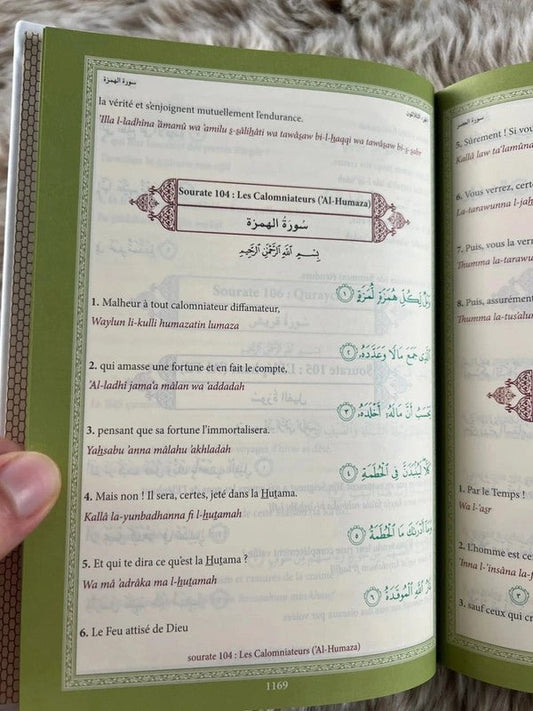 سورة الهمزة
la vérité et s'enjoignent mutuellement l'endurance.
'Illa l-ladhîna 'âmanû wa 'amilu ṣ-ṣaliḥâti wa tawâṣaw bi-l-ḥaqqi wa tawâṣaw bi-ṣ-ṣabr
Sourate 104 : Les Calomniateurs ('Al-Humaza)
سورة الهمزة
بسم الله الرحمن الرحيم
وَيْلٌ لِّكُلِّ هُمَزَةٍ لُّمَزَةٍ ١
1. Malheur à tout calomniateur diffamateur,
Waylun li-kulli humazatin lumaza
ٱلَّذِى جَمَعَ مَالًا وَعَدَّدَهُۥ ٢
2. qui amasse une fortune et en fait le compte,
'Al-ladhi jama'a mâlan wa 'addadah
يَحْسَبُ أَنَّ مَالَهُۥٓ أَخْلَدَهُۥ ٣
3. pensant que sa fortune l'immortalisera.
Yaḥsabu 'anna mâlahu 'akhladah
كَلَّا لَيُنۢبَذَنَّ فِى ٱلْحُطَمَةِ ٤
4. Mais non ! Il sera, certes, jeté dans la Ḥuṭama.
Kallâ la-yunbadhanna fi l-ḥuṭamah
وَمَآ أَدْرَىٰكَ مَا ٱلْحُطَمَةُ ٥
5. Et qui te dira ce qu'est la Ḥuṭama ?
Wa mâ 'adrâka ma l-ḥuṭamah
نَارُ ٱللَّهِ ٱلْمُوقَدَةُ ٦
6. Le Feu attisé de Dieu
sourate 104 : Les Calomniateurs ('Al-Humaza)
1169
سورة العصر
5. Sûrement ! Si vou
Kallâ law ta'lamûna
6. Vous verrez, certe
La-tarawunna l-jaḥ
7. Puis, vous la verre
Thumma la-tarawu
8. Puis, assurément
Thumma la-tus'alu
1. Par le Temps !
Wa l-'aṣr
2. L'homme est ce
'Inna l-'insâna la-f
٣
3. sauf ceux qui cr